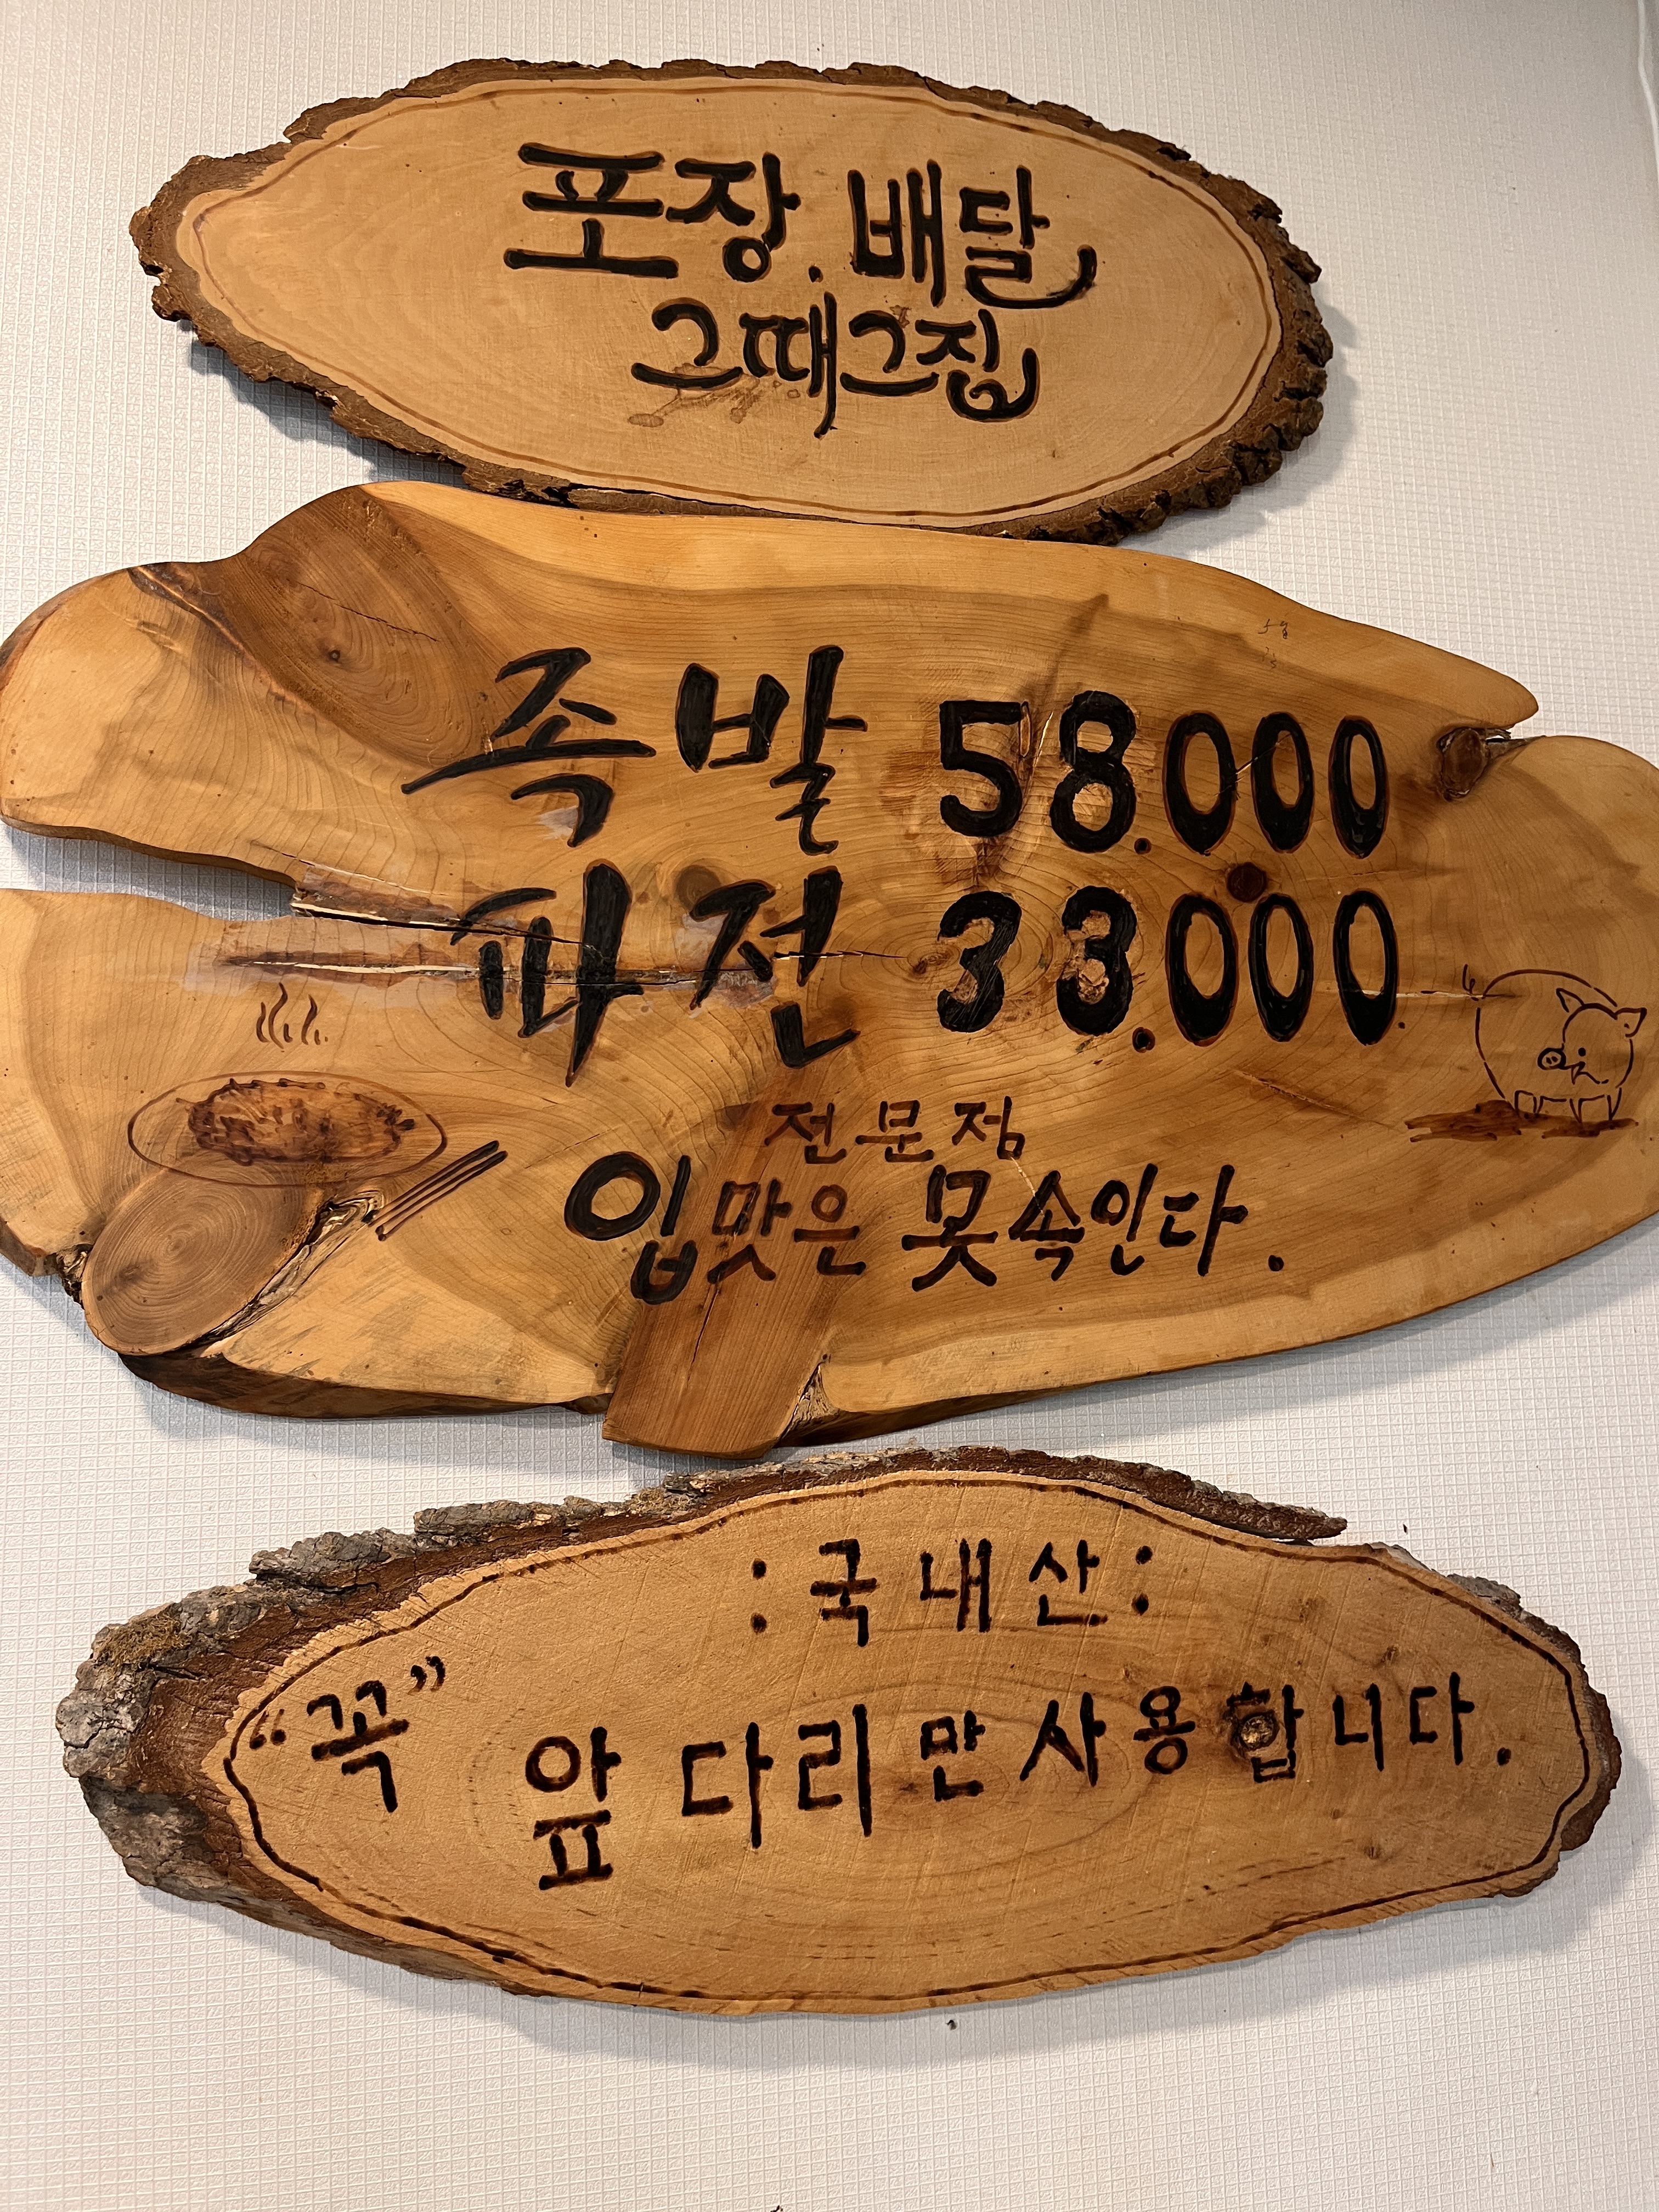 포장.배달
그때그집
족발 58.000
파전 33.000
전문점
입맛은 못속인다.
:국내산:
"꼭" 앞다리만 사용합니다.